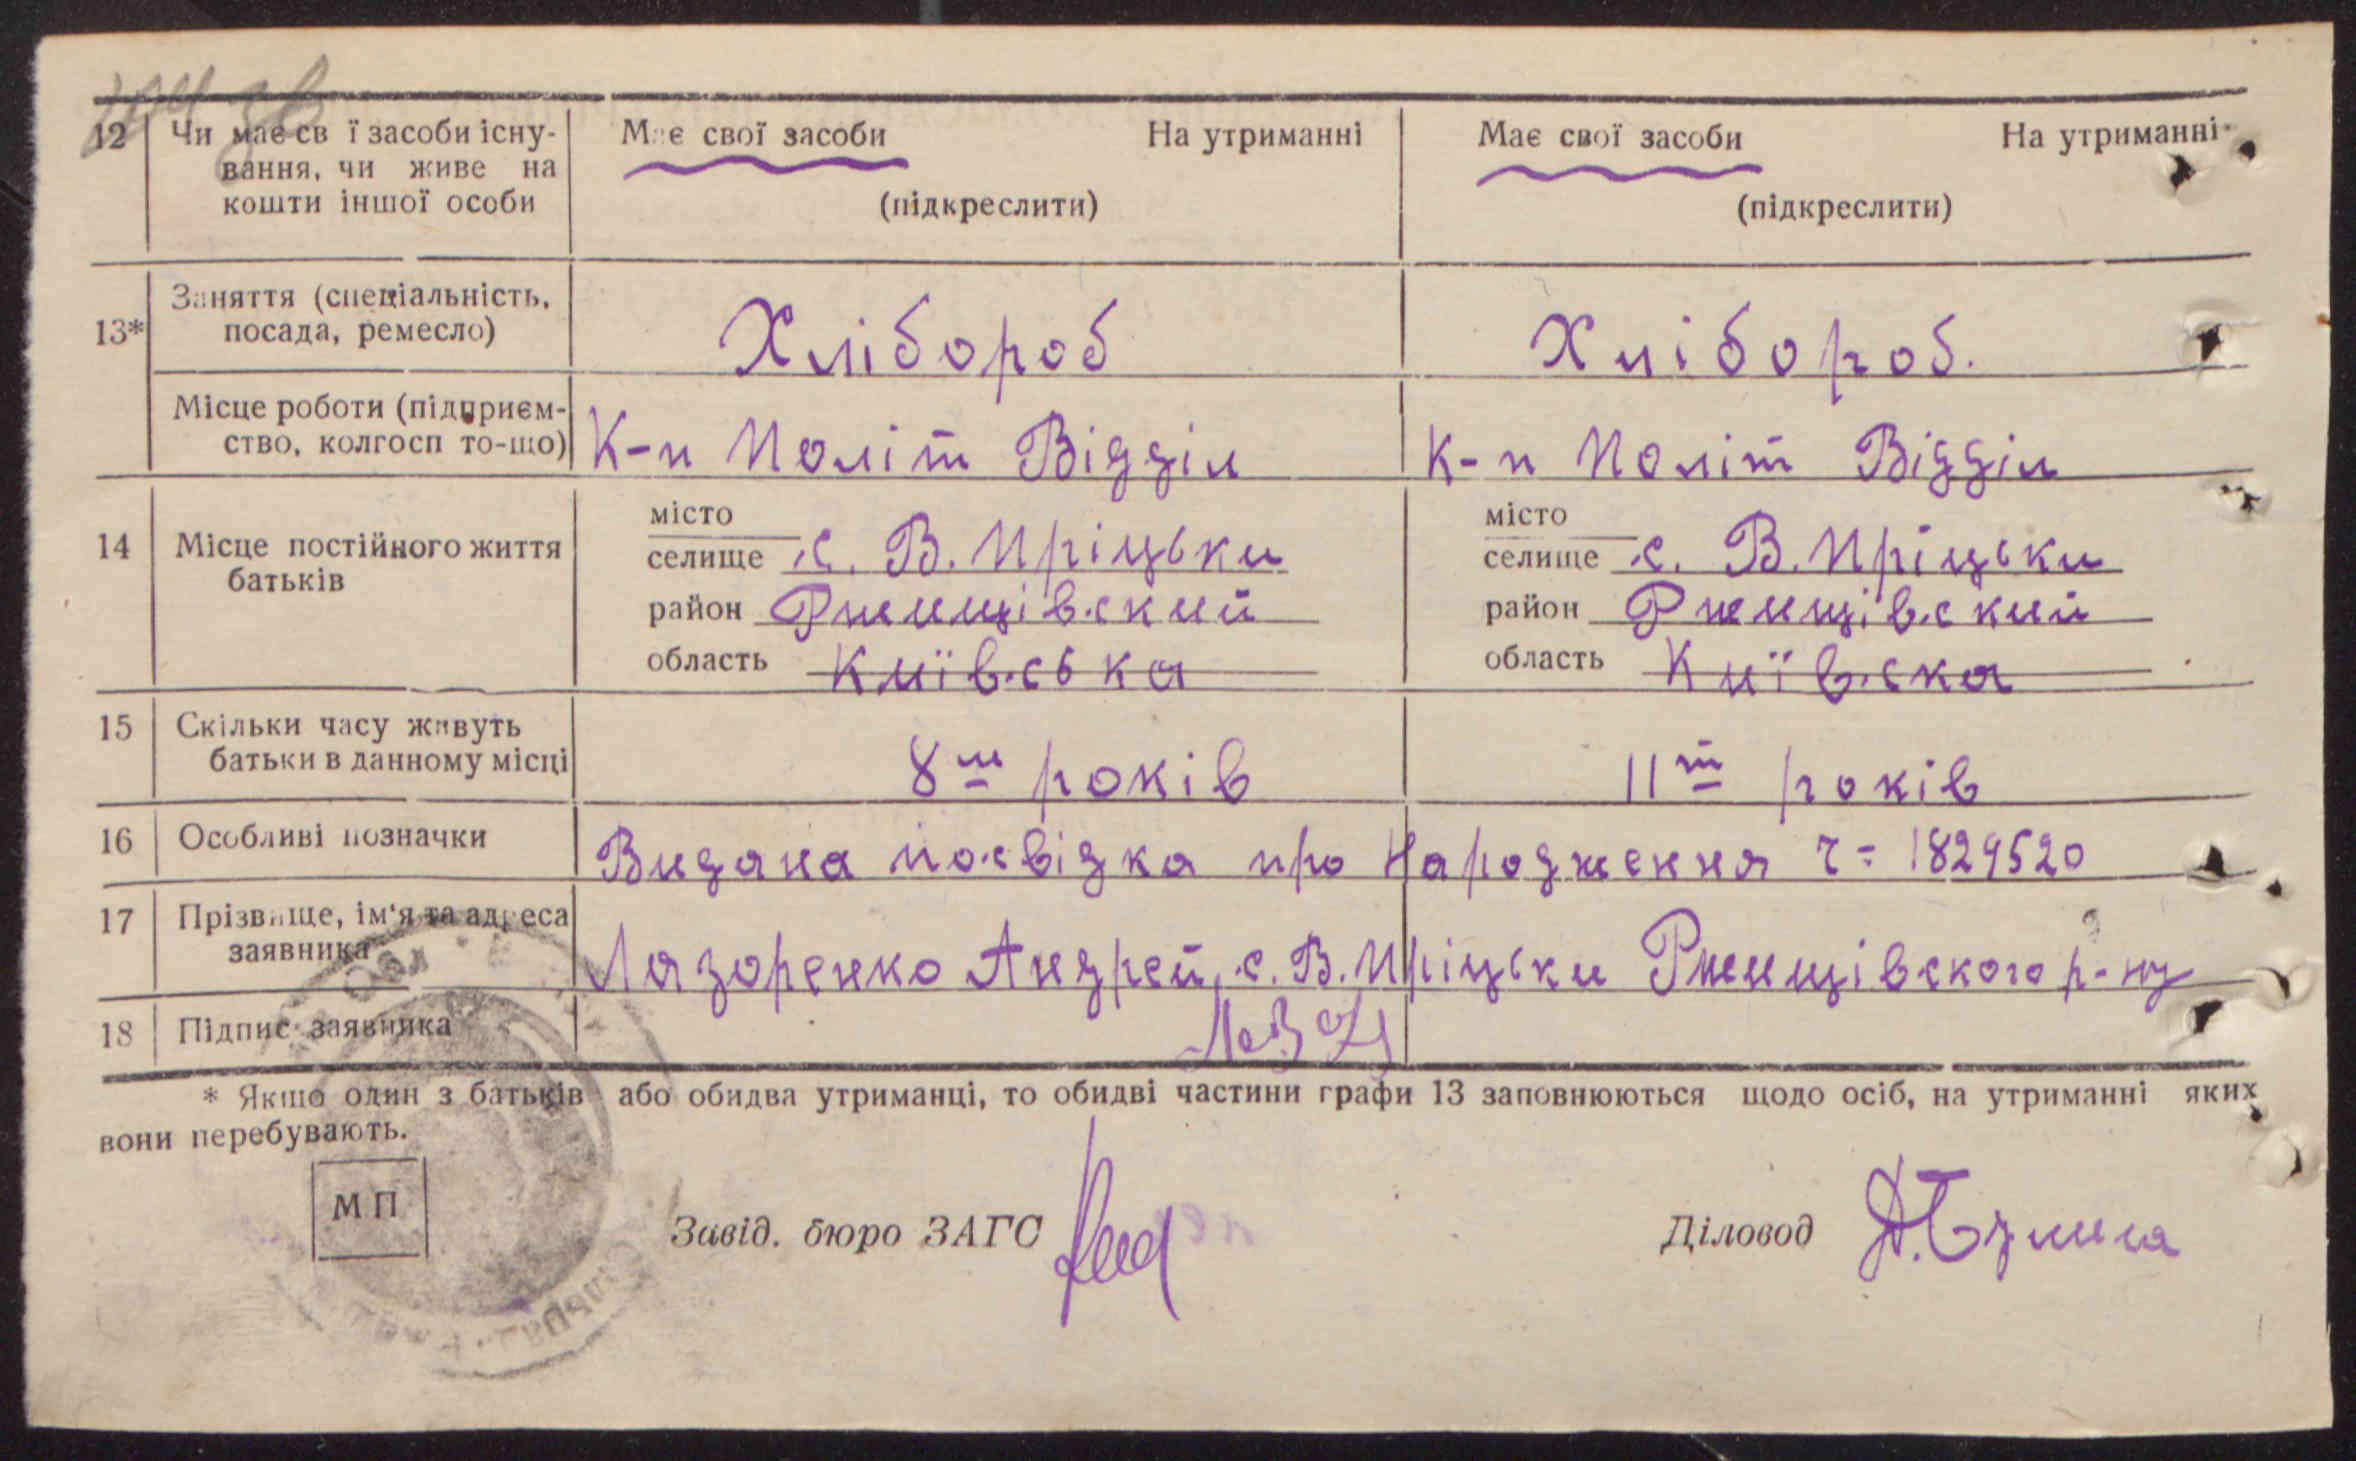 12 Чи має св ї засоби існу- Має свої засоби На утриманні Має свої засоби На утриманні
вання, чи живе на
кошти іншої особи (підкреслити) (підкреслити)
13* Заняття (спеціальність,
посада, ремесло) Хлібороб Хлібороб.
Місце роботи (підприєм-
ство, колгосп то-що) К-п Політ Відділ К-п Політ Відділ
місто місто
14 Місце постійного життя селище с. В. Пріцьки селище с. В. Пріцьки
батьків район Ржищівский район Ржищівский
область Київська область Київска
15 Скільки часу живуть
батьки в данному місці 8м років 11т років
16 Особливі позначки Видана посвідка про Народження ч= 1829520
17 Прізвище, ім'я та адреса
заявника Лазоренко Андрей с. В. Пріцьки Ржищівского р-ну
18 Підпис заявника
* Якщо один з батьків або обидва утриманці, то обидві частини графи 13 заповнюються щодо осіб, на утриманні яких
вони перебувають.
М П
Завід. бюро ЗАГС Діловод